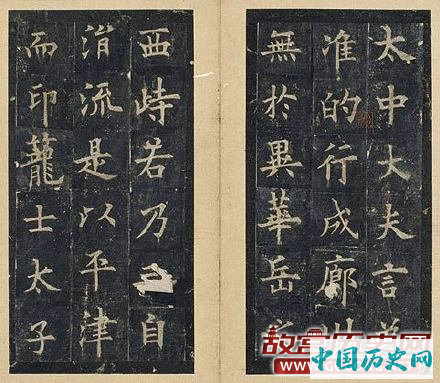 太中大夫言
准的行成廊
無於異華岳
西峙若乃自
渭流是以平津
而印蘢士太子
中国历史网